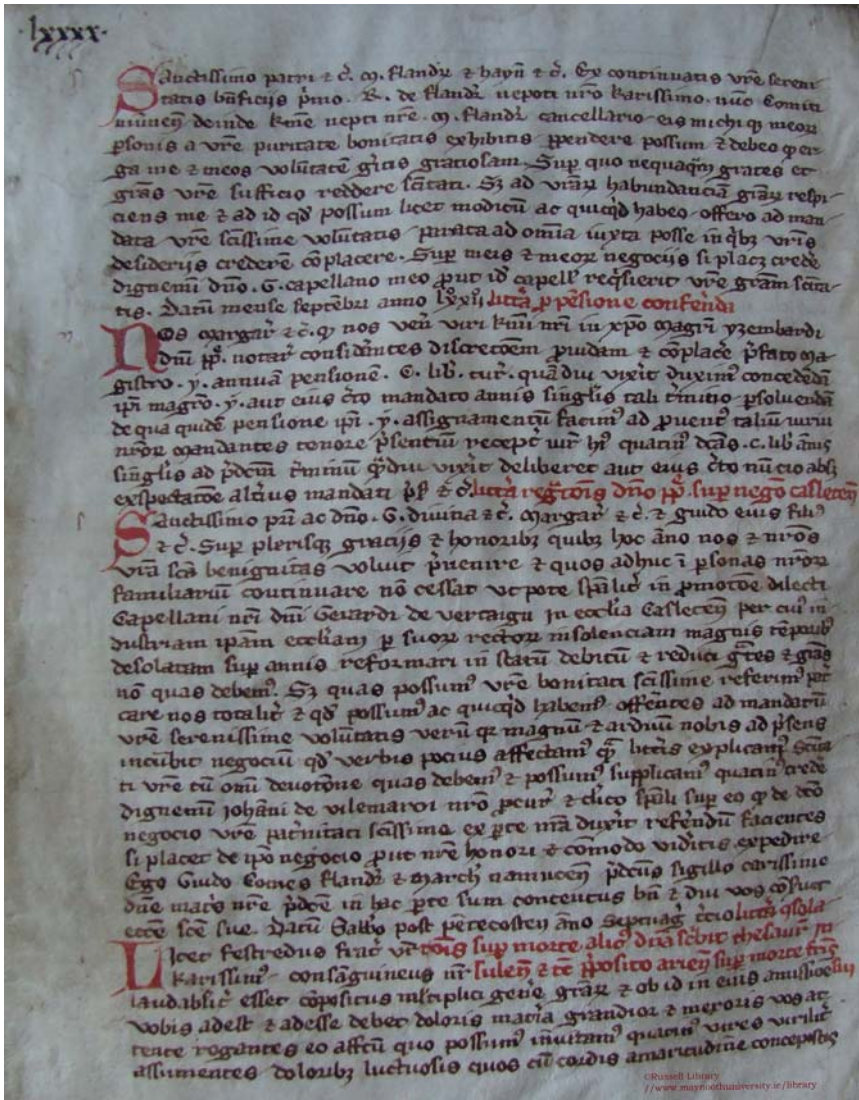 ·lxxxx·
Sanctissimo patri & c̄. M. flandr̄ & hayn̄ & c̄. Ex continuatis vr̄e sereni-
tatis bn̄ficijs pīmo. R. de flandr̄ nepoti nr̄o karissimo. nūc Comiti
deinde kīne nepti nr̄e. M. flandr̄ cancellario eis michi q̨ meor̄
psonis a vr̄e puritate bonitatis exhibitis ꝑpendere possum & debeo
ga me & meos volūtatē gratiosam. Sup quo nequaq̄m grates et
gr̄as vr̄e sufficio reddere sc̄itati. Sꝫ ad vr̄ar̄ habundanciā gr̄ar̄ respi-
ciens me & ad id qd̄ possum licet modicū ac quicq̄d habeo offero ad man-
data vr̄e sc̄issime volūtatis parata ad om̄ia iuxta posse in vr̄is
desiderijs crederē cōplacere. Sup meis & meor̄ negocijs si placꝫ crede
dignemī dn̄o. G. capellano meo ꝓut id̄ capell̄ req̄sierit vr̄e gr̄am sc̄ita-
tis. Datū mense septēbri anno lxxij littā ꝑ pēsione confer̄da
Nos Margar̄ & c̄. nos ven̄ viri nr̄i in xp̄o magr̄i yzembardi
dn̄i pp̄. notar̄ considātes discretōem ꝓuidam & cōplac̄e p̄fato ma-
gistro. y. annuā pensionē. C. lib̄. tur̄. quādiu vix̄it duxim̄ concedēdā
ip̄i magrō. y. aut eius c̄to mandato annis sinḡlis tali t̄mino ꝑsoluendā
de qua quidē pensione ip̄i. y. assignamentū facim̄ ad ꝓuent̄ taliū
nr̄or̄ mandantes tenore p̄sentiū recept̄ quatin̄ dc̄as. c. lib̄ ān̄is
sinḡlis ad p̄dc̄m t̄minū q̄mdiu vix̄it deliberet aut eius c̄to nūtio absqꝫ
exspectatōe alt̄ius mandati & c̄. littā dn̄o pp̄. sup negō casletēn̄
Sanctissimo p̄ri ac dn̄o. G. diuina & c̄. Margar̄ & c̄. & guido eius fili9
& c̄. Sup plerisqꝫ gracijs & honoribꝫ quibꝫ hoc āno nos & nr̄os
vr̄a sc̄a benignitas voluit p̄uenire & quos adhuc ī ꝑsonas nr̄or̄
familiariū continuare nō cessat ut pote sp̄alit̄ in ꝓmotōe dilecti
Capellani nr̄i dn̄i Gerardi de vertaign̄ in eccl̄ia Casletēn̄ per cui9 in-
dustriam ip̄am eccl̄iam ꝑ suor̄ rector̄ insolenciam magnis tēporibꝫ
desolatam sup annis reformari in statū debitū & reduci gr̄tes & gr̄as
nō quas debem̄. Sꝫ quas possum̄ vr̄e bonitati sc̄issime referim̄
care nos totalit̄ & qd̄ possum̄ ac quicq̄d habem̄ offerētes ad mandatū
vr̄e serenissime volūtatis verū q̨ magnū & arduū nobis ad p̄sens
incūbit negociū qd̄ verbis pocius affectam̄ q̄ litt̄is explicari sc̄ita
ti vr̄e cū om̄i deuotōne quas debem̄ & possum̄ supplicam̄ quatin̄ crede
dignemī ioh̄anni de vilemaroi nr̄o ꝓcur̄ & cl̄ico sp̄ali sup eo q̨ de dc̄o
negocio vr̄e pat̄nitati sc̄issime ex ꝑte nr̄a dux̄it refer̄ndū faciences
si placet de ip̄o negocio ꝓut nr̄e honori & comodo vid̄itis expedire
Ego Guido Comes flandr̄ & march̄ namucēn̄ p̄dc̄us sigillo carissime
dn̄e mat̄s nr̄e p̄dc̄e in hac ꝑte sum contentus bn̄ & diu vos
eccē sc̄e sue. Datū Sabb̄o post pētecosten āno septuaḡ t̄cio litt̄a qsola-
Licet festredus frat̄ vr̄ tōis sup morte alic9 thesaur̄
karissim̄ consāguineus nr̄ & p̄posito sup morte
laudabilit̄ esset cōpositus ml̄tiplici gen̄e gr̄ar̄ & ob id in eius amissiōe
vobis adest & adesse debet doloris mat̄ia grandior & meroris vos at
tente rogantes eo affc̄u quo possum̄ inuitam̄ quatin̄ vires virilit̄
assumentes doloribꝫ luctuosis quos cū cordis amaritudine concepistis
©Russell Library
//www.maynoothuniversity.ie/library